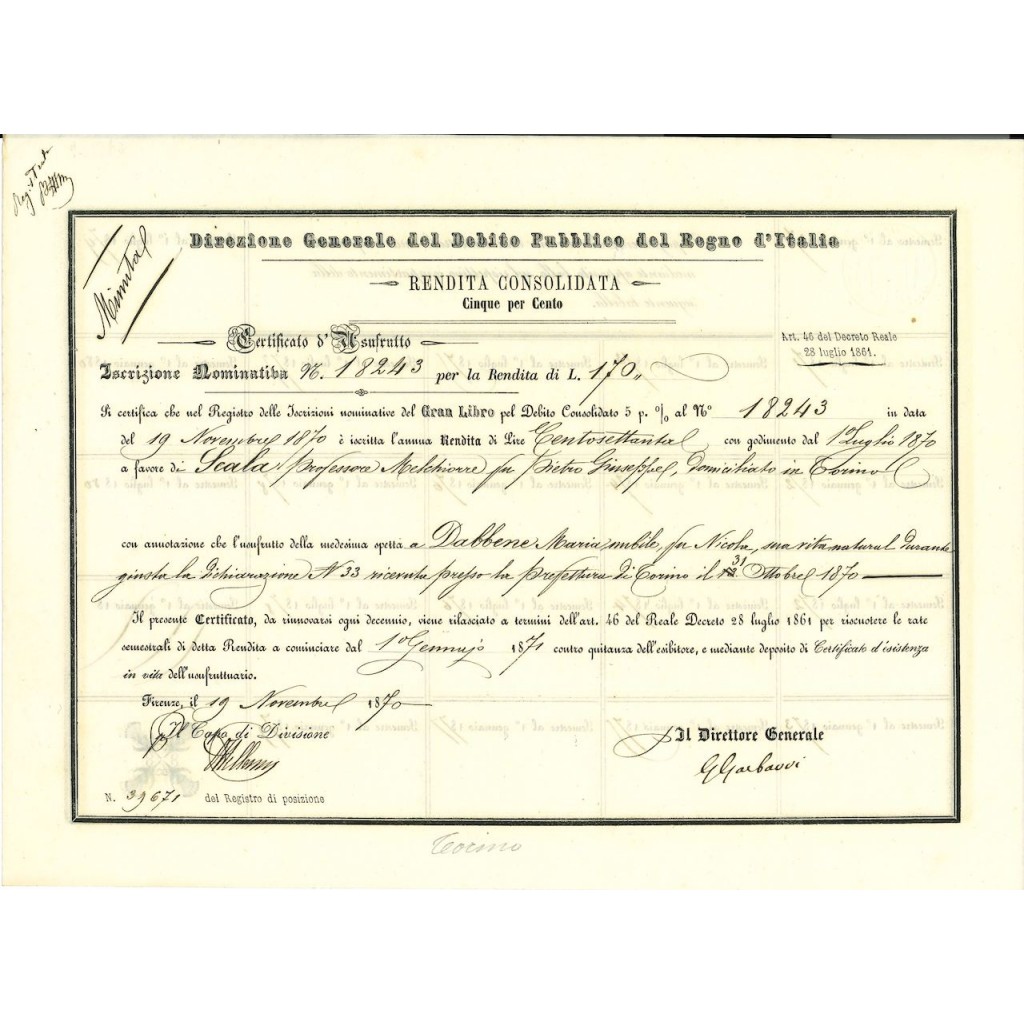 Reg.
Minuta
Direzione Generale del Debito Pubblico del Regno d'Italia
RENDITA CONSOLIDATA
Cinque per Cento
Certificato d'Usufrutto
Art. 46 del Decreto Reale
28 luglio 1861.
Iscrizione Nominativa N. 18243 per la Rendita di L. 170 „
Si certifica che nel Registro delle Iscrizioni nominative del Gran Libro pel Debito Consolidato 5 p. % al N° 18243 in data
del 19 Novembre 1870 è iscritta l'annua Rendita di Lire Centosettanta con godimento dal 1° Luglio 1870
a favore di Scala Professore Melchiorre fu Pietro Giuseppe, domiciliato in Torino
con annotazione che l'usufrutto della medesima spetta a Dabbene Maria nubile, fu Nicola, sua vita natural durante
giusta la dichiarazione N 33 ricevuta presso la Prefettura di Torino il 31 Ottobre 1870
Il presente Certificato, da rinnovarsi ogni decennio, viene rilasciato a termini dell'art. 46 del Reale Decreto 28 luglio 1861 per riscuotere le rate
semestrali di detta Rendita a cominciare dal 1° Gennajo 1871 contro quitanza dell'esibitore, e mediante deposito di Certificato d'isistenza
in vita dell'usufruttuario.
Firenze, il 19 Novembre 1870
Il Capo di Divisione
Il Direttore Generale
G Garbarri
N. 39671 del Registro di posizione
Torino